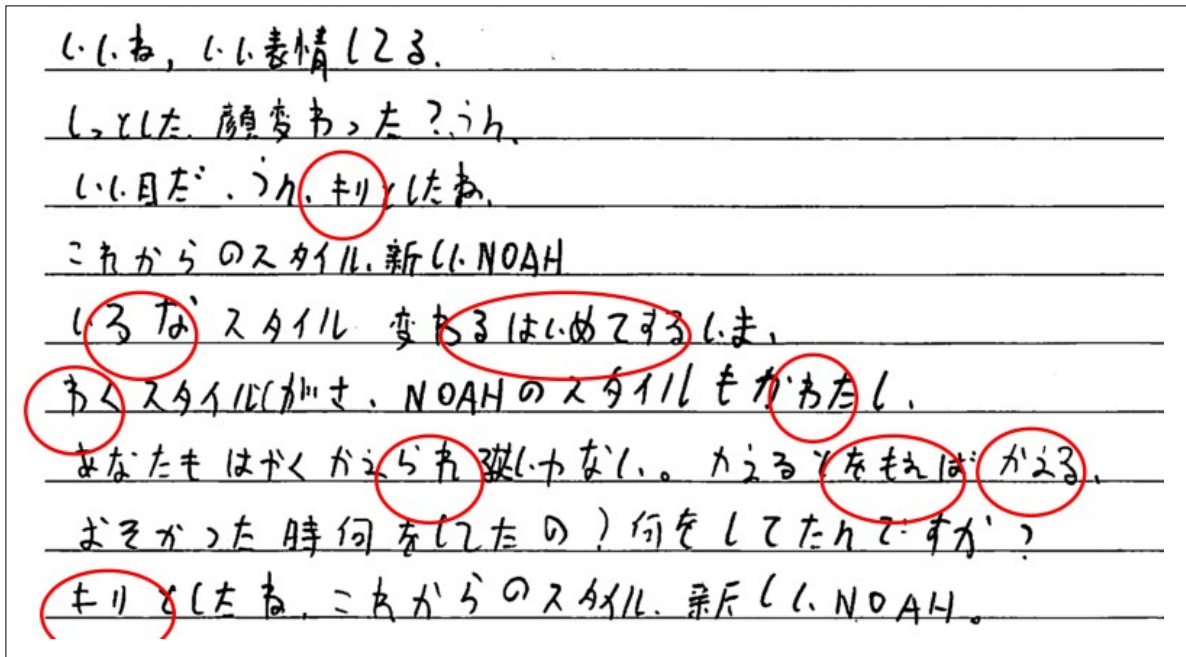 いいね,いい表情してる.
しっとした.顔変わった?うん.
いい目だ、うん、キリとしたね、
これからのスタイル、新しいNOAH
いろなスタイル 変わるはじめてするしま、
わくスタイルがさ、NOAHのスタイルもかわたし、
あなたもはやくかえられ欲しいかない。かえるとをもえばかえる、
おそかった時何をしてたの?何をしてたんですか?
キリとしたね、これからのスタイル、新しいNOAH。